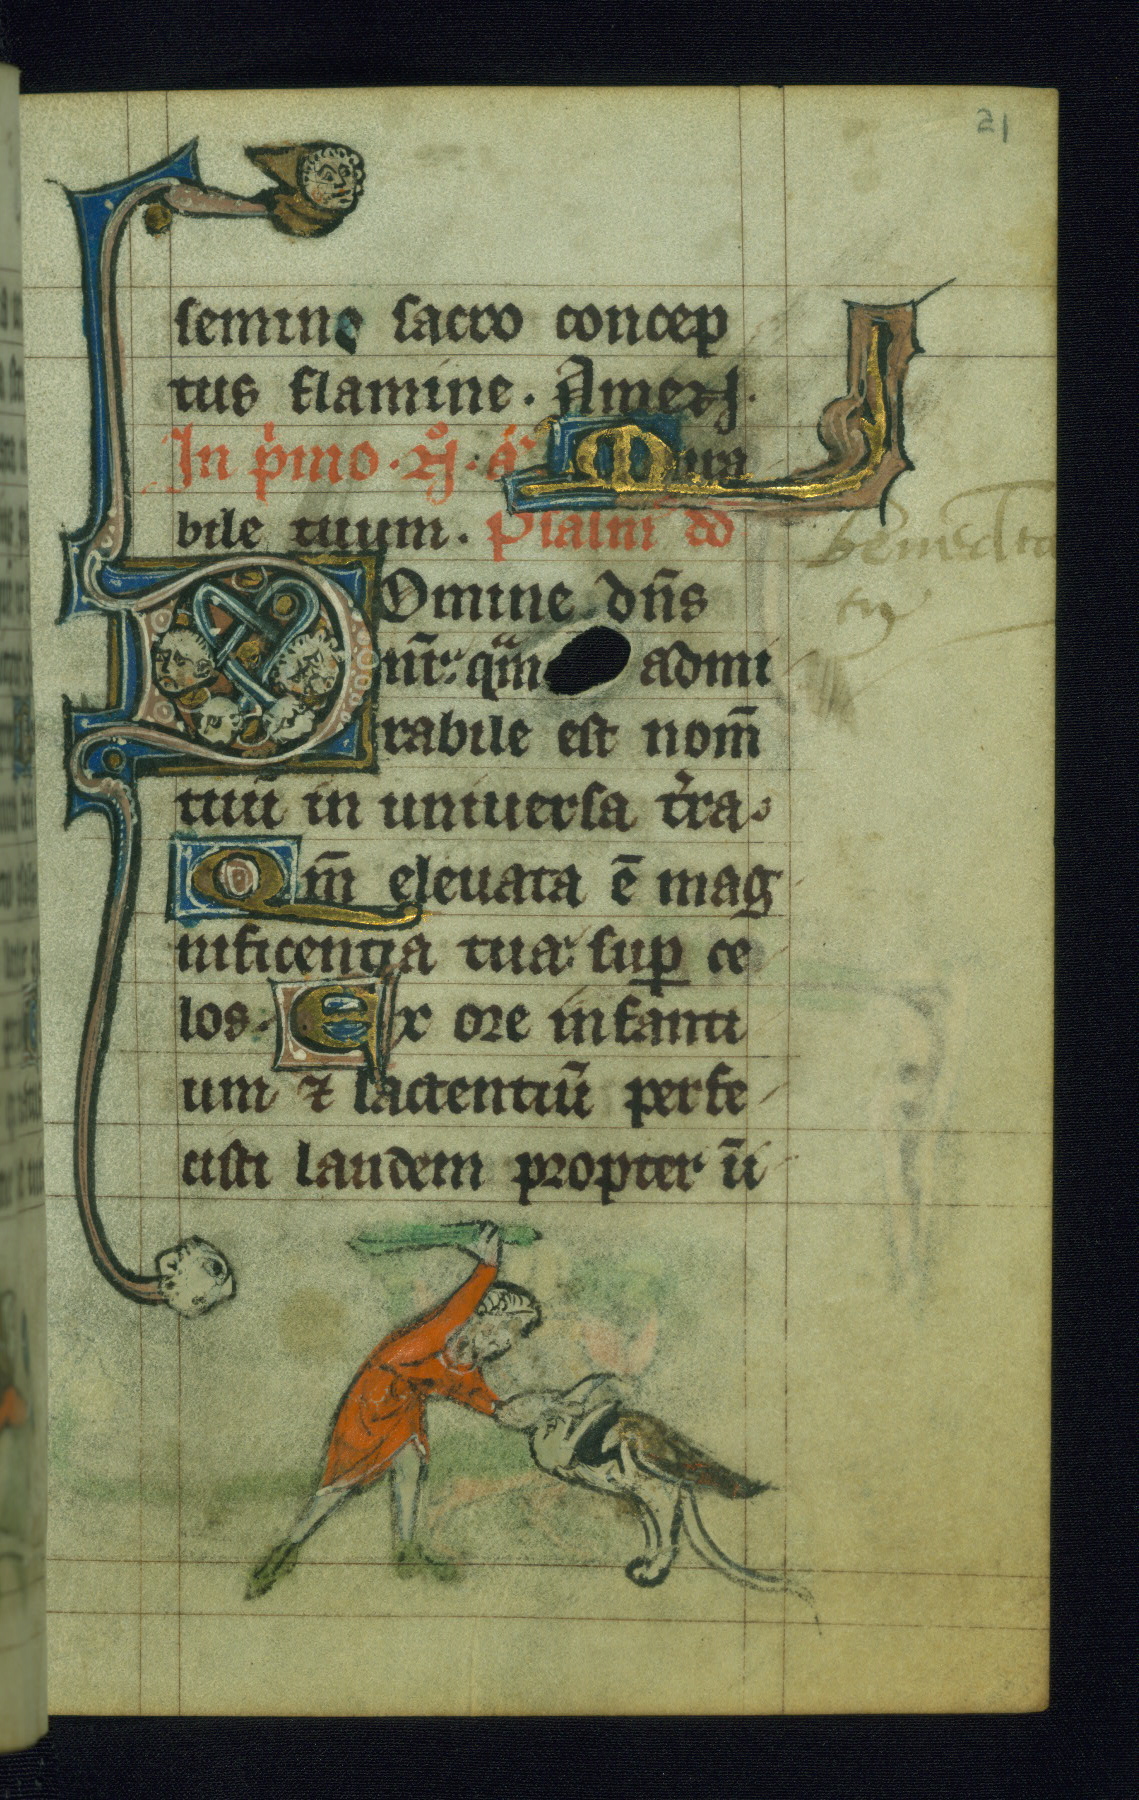 21
semine sacro concep
tus flamine. Amen.
In p̾mo. n̊. a᷑ Mira
bile tuum. Psalm̄ dd
Domine dn̄s
nr̄: qm̄ admi
rabile est nom̄
tuū in uniuersa t̾ra.
Qm̄ eleuata ē mag
nificentia tua: suꝑ ce
los. Ex ore infanti
um ⁊ lactentiū perfe
cisti laudem propter īi
benedicta
tu